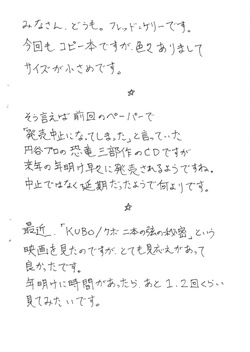 みなさん、どうも。フレッド・ケリーです。
今回も コピー本ですが、色々ありまして
サイズが小さめです。
☆
そう言えば 前回のペーパーで
「発売中止になってしまった」と言っていた
円谷プロの 恐竜三部作のCDですが
来年の年明け早々に 発売されるようですね。
中止ではなく 延期だったようで何よりです。
☆
最近、「KUBO/クボ 二本の弦の秘密」という
映画を見たのですが、とても見応えがあって
良かったです。
年明けに時間があったら、あと 1、2回くらい
見てみたいです。